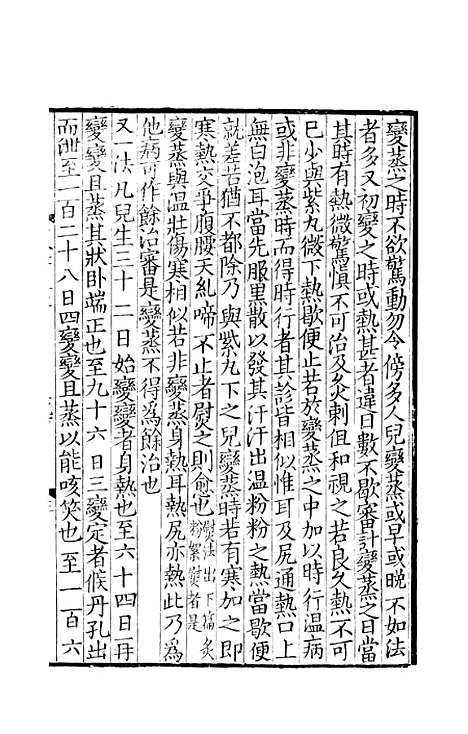 變蒸之時不欲驚動勿令傍多人兒變蒸或早或晚不如法
者多又初變之時或熱甚者違日數不歇審計變蒸之日當
其時有熱微驚慎不可治及灸刺但和視之若良久熱不可
已少與紫丸微下熱歇便止若於變蒸之中加以時行温病
或非變蒸時而得時行者其診皆相似惟耳及尻通熱口上
無白泡耳當先服黑散以發其汗汗出温粉粉之熱當歇便
就差若猶不都除乃與紫丸下之兒變蒸時若有寒加之即
寒熱交爭腹腰夭糺啼不止者熨之則愈也熨法出下篇灸粉絮熨者是
變蒸與温壯傷寒相似若非變蒸身熱耳熱尻亦熱此乃為
他病可作餘治審是變蒸不得為餘治也
又一法凡兒生三十二日始變變者身熱也至六十四日再
變變且蒸其狀卧端正也至九十六日三變定者候丹孔出
而泄至一百二十八日四變變且蒸以能咳笑也至一百六